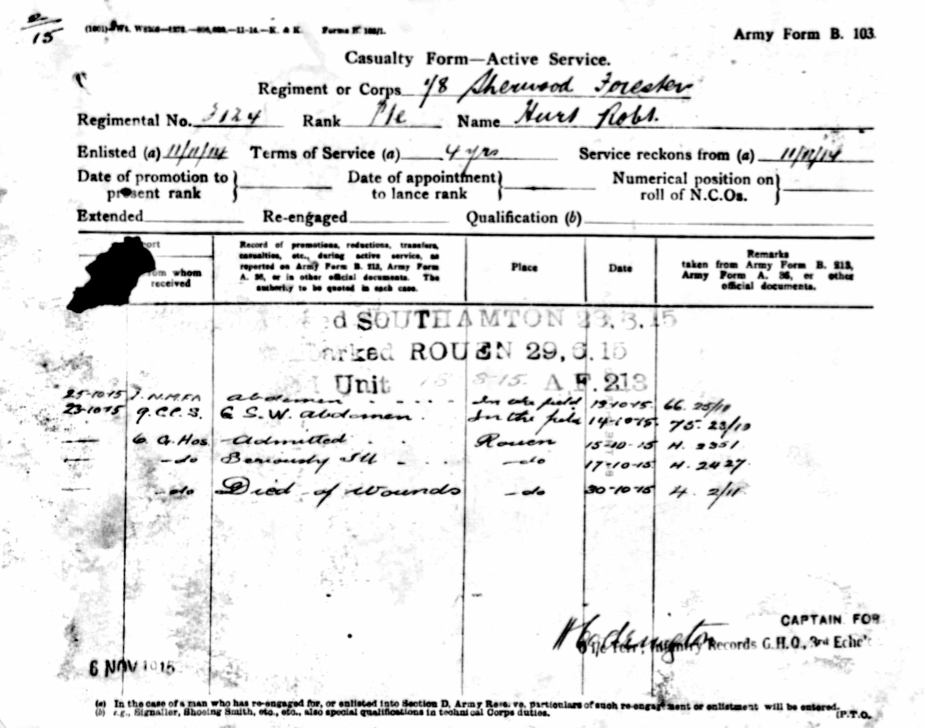 15
Forms B. 103/1.
Army Form B. 103
Casualty Form—Active Service.
Regiment or Corps 1/8 Sherwood Forester
Regimental No. 3124 Rank Pte Name Hurt Robt.
Enlisted (a) 11/11/14 Terms of Service (a) 4 yrs Service reckons from (a) 11/11/14
Date of promotion to present rank } Date of appointment to lance rank } Numerical position on roll of N.C.Os. }
Extended Re-engaged Qualification (b)
from whom received
Record of promotions, reductions, transfers, casualties, etc., during active service, as reported on Army Form B. 213, Army Form A. 36, or in other official documents. The authority to be quoted in each case.
Place
Date
Remarks taken from Army Form B. 213, Army Form A. 36, or other official documents.
SOUTHAMTON 15
arked ROUEN 29.6.15
Unit 15 A F. 213
25-10-15 abdomen In the field 13-10-15 66. 25/10
23-10-15 9.C.C.S. G S.W. Abdomen. In the field 14-10-15 75- 23/10
6. G. Hos Admitted Rouen 15-10-15 H. 2351
-do Seriously Ill -do 17-10-15 H. 2427
-do Died of wounds -do 30-10-15 2/11
CAPTAIN FOR
Terr. Infantry Records G.H.Q., 3rd Ech
6 NOV 1915
(a) In the case of a man who has re-engaged for, or enlisted into Section D, Army Reserve, particulars of such re-engagement or enlistment will be entered.
(b) e.g., Signaller, Shoeing Smith, etc., etc., also special qualifications in technical Corps duties.
(P.T.O.